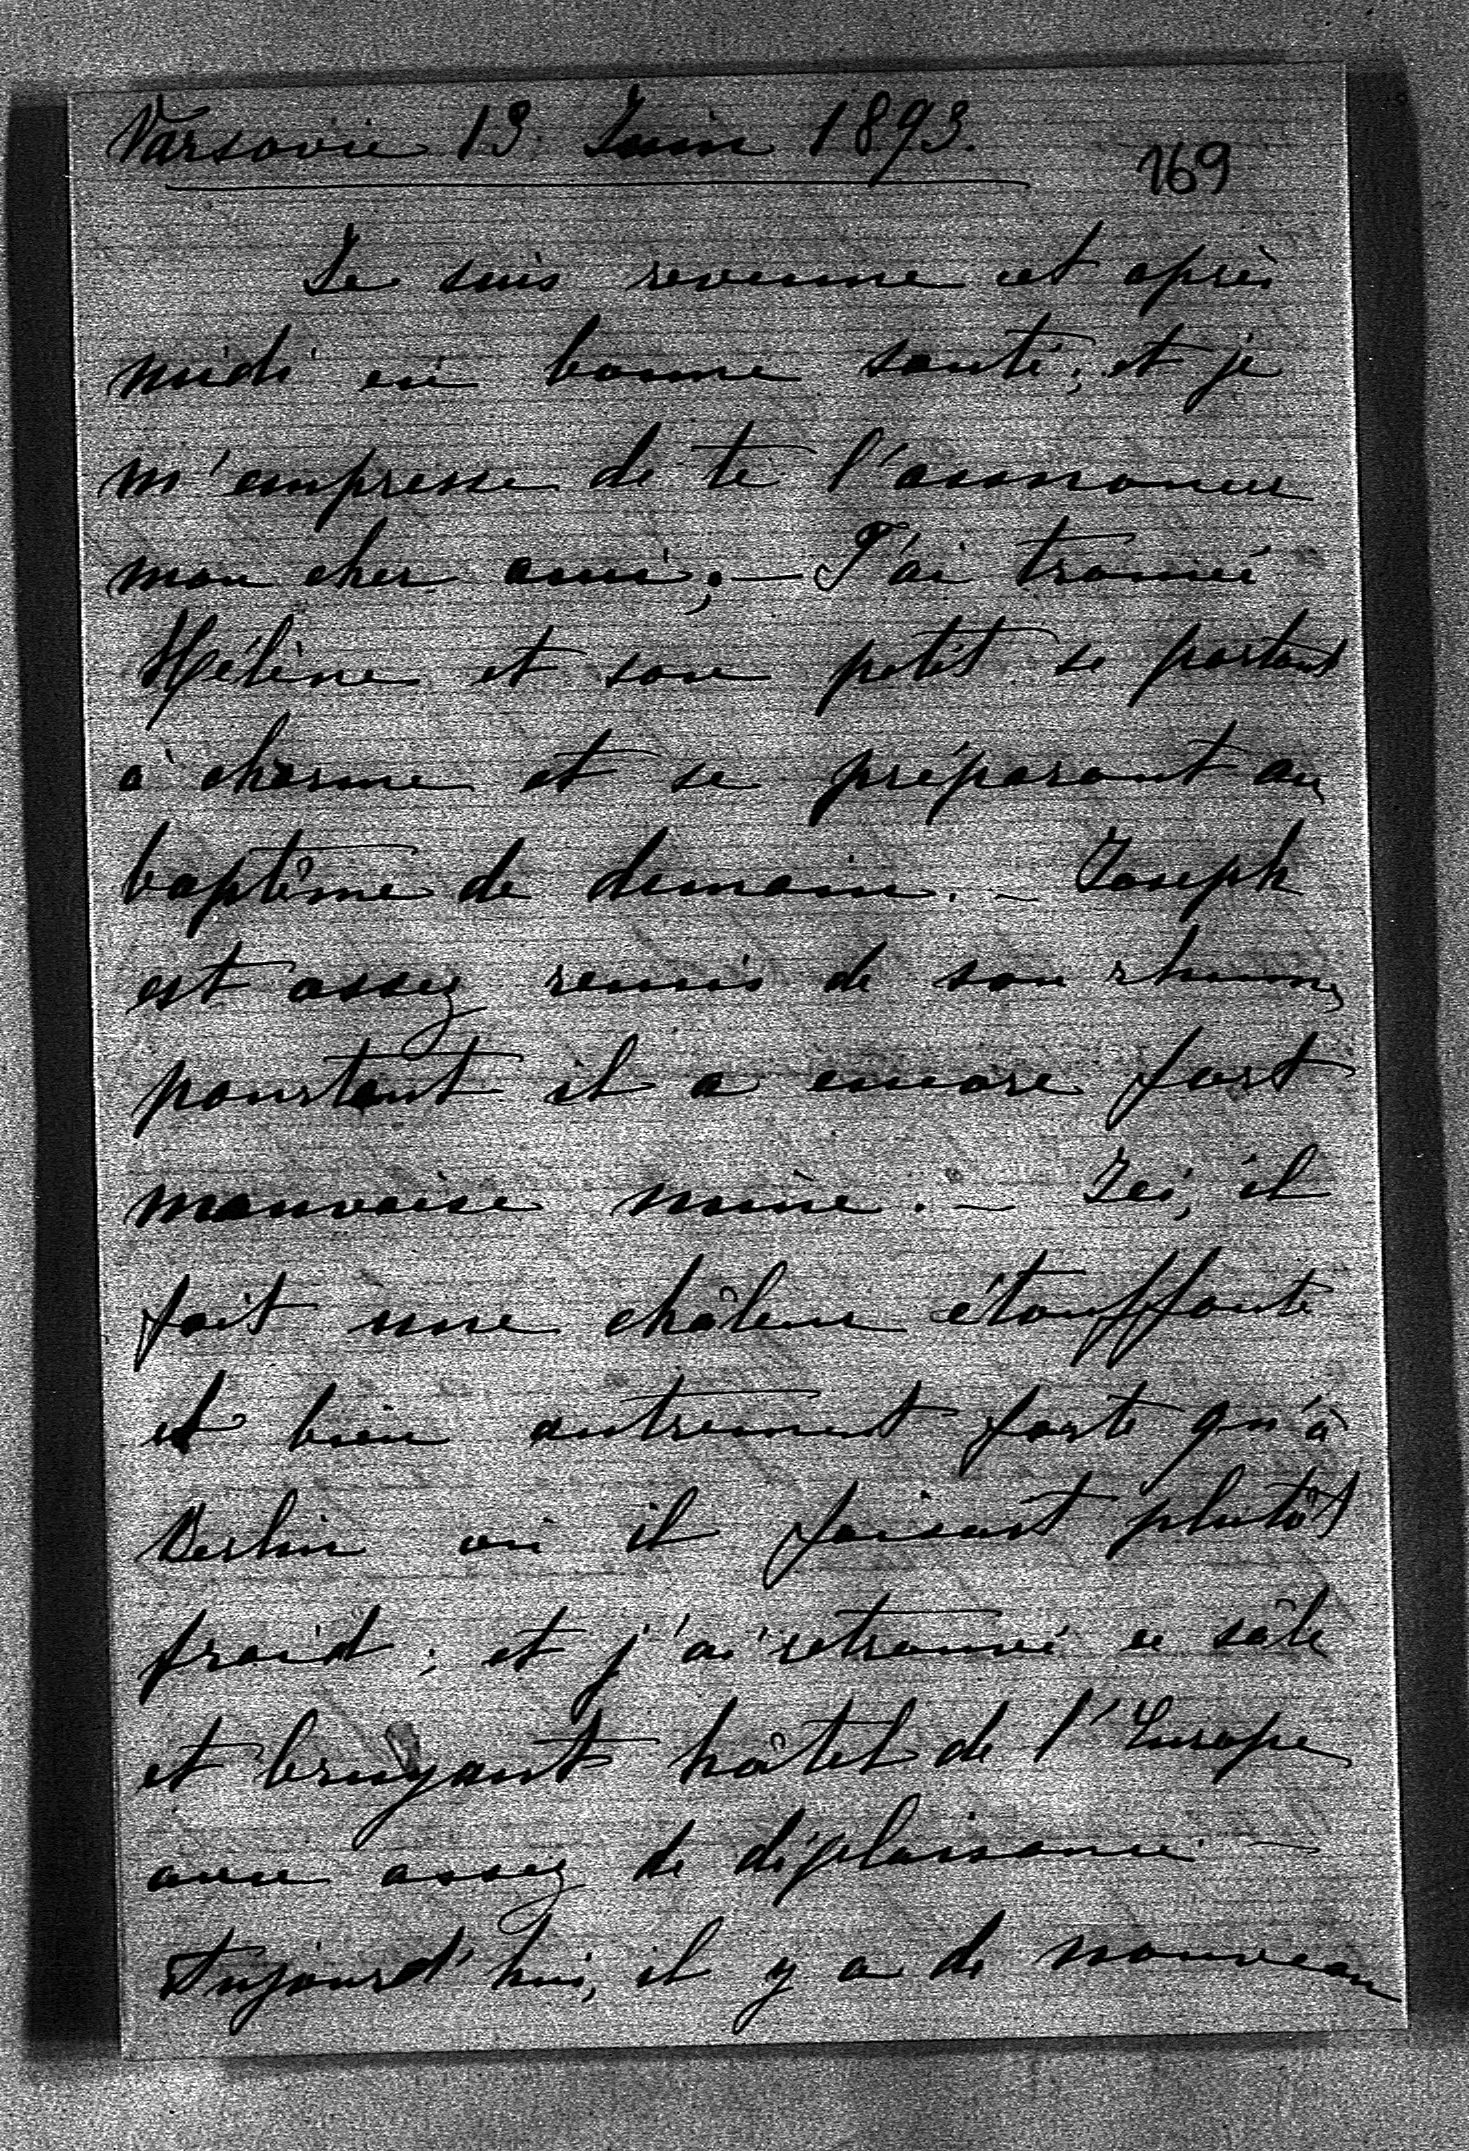 Varsovie 13 Juin 1893.
169
Je suis revenue cet après
midi en bonne santé; et je
m'empresse de te l'annoncer
mon cher ami; – J'ai trouvé
Hélène et son petit se portant
à charme et se préparant au
baptême de demain. – Joseph
est assez remis de son rhume,
pourtant il a encore fort
mauvaise mine. – Ici, il
fait une châleur étouffante
et bien autrement forte qu'à
Berlin où il faisait plutôt
froid; et j'ai retrouvé ce sâle
et bruyant hôtel de l'Europe
avec assez de déplaisance –
Aujourd'hui, il y a de nouveau